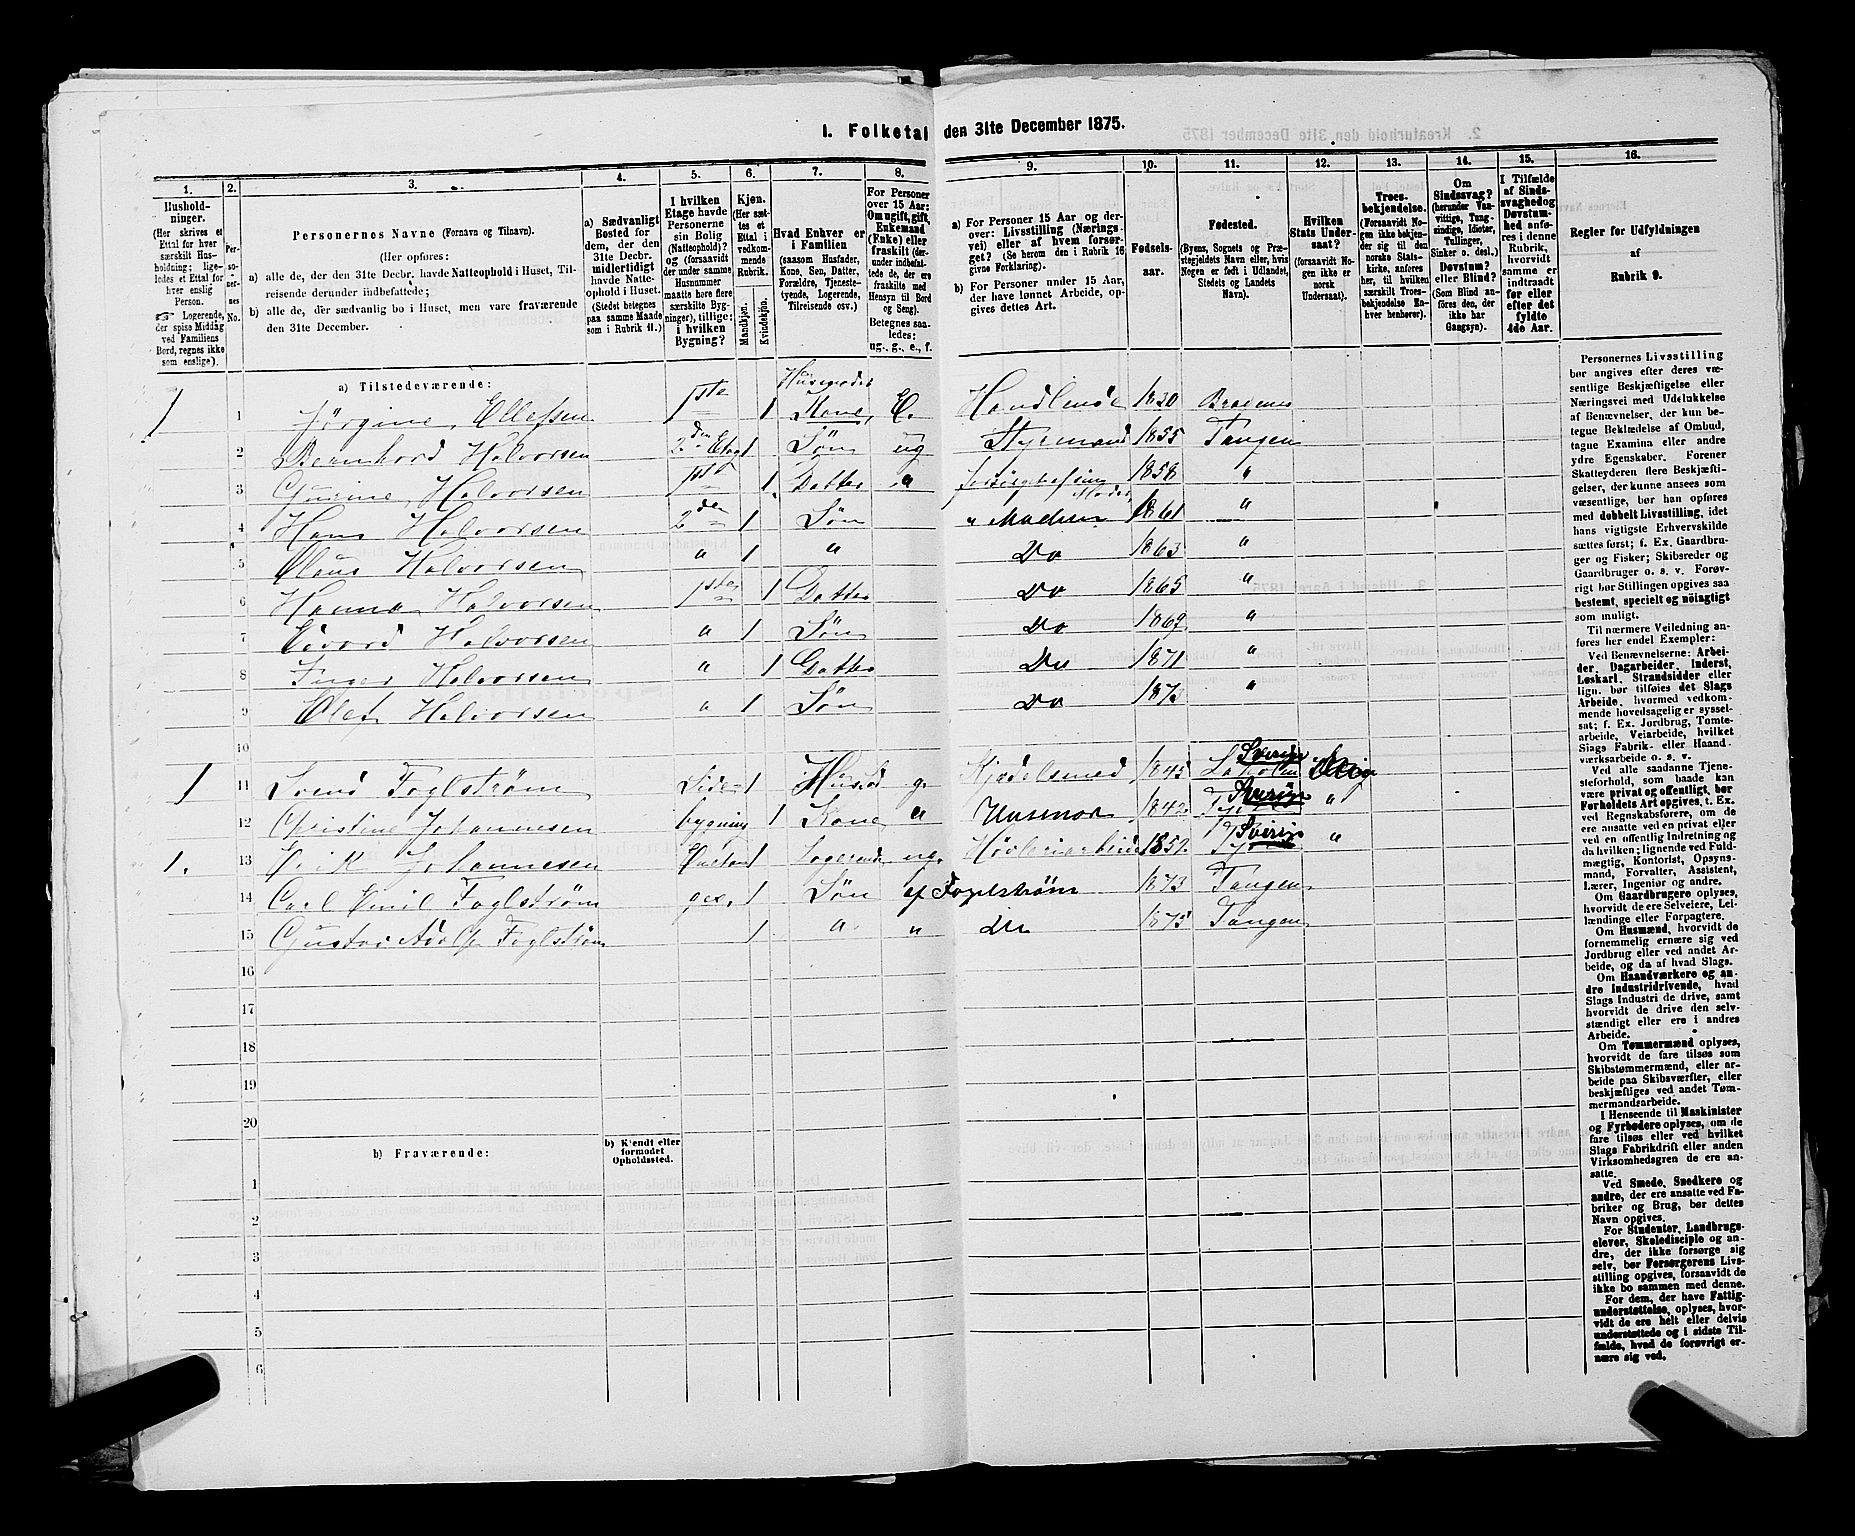 1. Folketal den 31te December 1875.
1. 2. 3. 4. 5. 6. 7. 8. 9. 10. 11. 12. 13. 14. 15. 16.
Husholdninger.
(Her skrives et Ettal for hver særskilt Husholdning; ligeledes et Ettal for hver enslig Person.
☞ Logerende, der spise Middag ved Familiens Bord, regnes ikke som enslige).
Personernes No.
Personernes Navne (Fornavn og Tilnavn).
(Her opføres:
a) alle de, der den 31te Decbr. havde Natteophold i Huset, Tilreisende derunder indbefattede;
b) alle de, der sædvanlig bo i Huset, men vare fraværende den 31te December.
a) Sædvanligt Bosted for dem, der den 31te Decbr. midlertidigt havde Natteophold i Huset. (Stedet betegnes paa samme Maade som i Rubrik 11.)
I hvilken Etage havde Personerne sin Bolig (Natteophold)? og (forsaavidt der under samme Husnummer maatte høre flere særskilte Bygninger), tillige: i hvilken Bygning?
Kjøn. (Her sættes et Ettal i vedkommende Rubrik.
Mandkjøn. Kvindekjøn.
Hvad Enhver er i Familien (saasom Husfader, Kone, Søn, Datter, Forældre, Tjenestetyende, Logerende, Tilreisende osv.)
For Personer over 15 Aar: Om ugift, gift, Enkemand (Enke) eller fraskilt (derunder indbefattede de, der ere fraskilte med Hensyn til Bord og Seng). Betegnes saaledes: ug., g., e., f.
a) For Personer 15 Aar og derover: Livsstilling (Næringsvei) eller af hvem forsørget? (Se herom den i Rubrik 16 givne Forklaring).
b) For Personer under 15 Aar, der have lønnet Arbeide, opgives dettes Art.
Fødselsaar.
Fødested. (Byens, Sognets og Præstegjeldets Navn eller, hvis Nogen er født i Udlandet, Stedets og Landets Navn).
Hvilken Stats Undersaat? (forsaavidt Nogen ikke er norsk Undersaat).
Troesbekjendelse. (Forsaavidt Nogen ikke bekjender sig til den norske Statskirke, anføres her, til hvilken særskilt Troesbekjendelse Enhver henhører).
Om Sindssvag? (herunder Vanvittige, Tungsindige, Idioter, Tullinger, Sinker o. desl.) Døvstum? eller Blind? (Som Blind anføres den, der ikke har Gangsyn).
I Tilfælde af Sindssvaghed og Døvstumhed anføres i denne Rubrik, hvorvidt samme er indtraadt før eller efter det fyldte 4de Aar.
Regler for Udfyldningen af Rubrik 9.
a) Tilstedeværende:
1 1 Jørgine Ellefsen 1ste 1 Husmoder Kone E. Handlende 1830 Bragenes
2 Bernhard Halvorsen 2den Etag 1 Søn ug Styrmand 1855 Tangen
3 Gurine Halvorsen 1ste 1 Datter " forsørghes sin Moder 1858 "
4 Hans Halvorsen 2den 1 Søn " Madsen 1861 "
5 Claus Halvorsen " 1 " Do 1863 "
6 Hanna Halvorsen 1ste 1 Datter Do 1865 "
7 Edvard Halvorsen " 1 Søn Do 1869 "
8 Inger Halvorsen " 1 Datter Do 1871 "
9 Olef Halvorsen " 1 Søn Do 1873 "
10
1 11 Svend Foglstrøm Side- 1 g. Kjedelsmed 1845 Laholm Sverige
12 Christine Johannesen bygning 1 Kone " 1842 Sverige "
1. 13 Johannesen 1 Logerende ug. 1852 Sverige "
14 Carl Emil Foglstrøm 1 Søn af Fogelstrøm 1873 Tangen
15 Gustav Adolf Foglstrøm 1 " " Do 1875 Tangen
16
17
18
19
20
b) Fraværende:
b) Kjendt eller formodet Opholdssted.
1
2
3
4
5
6
Personernes Livsstilling bør angives efter deres væsentlige Beskjæftigelse eller Næringsvei med Udelukkelse af Benævnelser, der kun betegne Beklædelse af Ombud, tagne Examina eller andre ydre Egenskaber. Forener Skatteyderen flere Beskjæftigelser, der kunne ansees som væsentlige, bør han opføres med dobbelt Livsstilling, idet hans vigtigste Erhvervskilde sættes først; f. Ex. Gaardbruger og Fisker; Skibsreder og Gaardbruger o. s. v. Forøvrigt bør Stillingen opgives saa bestemt, specielt og nöiagtigt som muligt.
Til nærmere Veiledning anføres her endel Exempler:
Ved Benævnelserne: Arbeider, Dagarbeider, Inderst, Løskarl, Strandsidder eller lign. bør tilføies det Slags Arbeide, hvormed vedkommende hovedsagelig er sysselsat; f. Ex. Jordbrug, Tomtearbeide, Veiarbeide, hvilket Slags Fabrik- eller Haandværksarbeide o. s. v.
Ved alle saadanne Tjenesteforhold, som baade kan være privat og offentligt, bør Forholdets Art opgives, t. Ex. ved Regnskabsførere, om de ere ansatte ved en privat eller en offentlig Indretning og da hvilken; lignende ved Fuldmægtig, Kontorist, Opsynsmand, Forvalter, Assistent, Lærer, Ingeniør og andre.
Om Gaardbrugere oplyses, hvorvidt de ere Selveiere, Leilændinge eller Forpagtere.
Om Husmænd, hvorvidt de fornemmelig ernære sig ved Jordbrug eller ved andet Arbeide, og da af hvad Slags.
Om Haandværkere og andre Industridrivende, hvad Slags Industri de drive, samt hvorvidt de drive den selvstændigt eller ere i andres Arbeide.
Om Tømmermænd oplyses, hvorvidt de fare tilsøs som Skibstømmermænd, eller arbeide paa Skibsværfter, eller beskjæftiges ved andet Tømmermandsarbeide.
I Henseende til Maskinister og Fyrbødere oplyses, om de fare tilsøs eller ved hvilket Slags Fabrikdrift eller anden Virksomhedsgren de ere ansatte.
Ved Smede, Snedkere og andre, der ere ansatte ved Fabriker og Brug, bør dettes Navn opgives.
For Studenter, Landbrugselever, Skoledisciple og andre, der ikke forsørge sig selv, bør Forsørgerens Livsstilling opgives, forsaavidt de ikke bo sammen med denne.
For dem, der have Fattigunderstøttelse, oplyses, hvorvidt de ere helt eller delvis understøttede og i sidste Tilfælde, hvad de forøvrigt ernære sig ved.